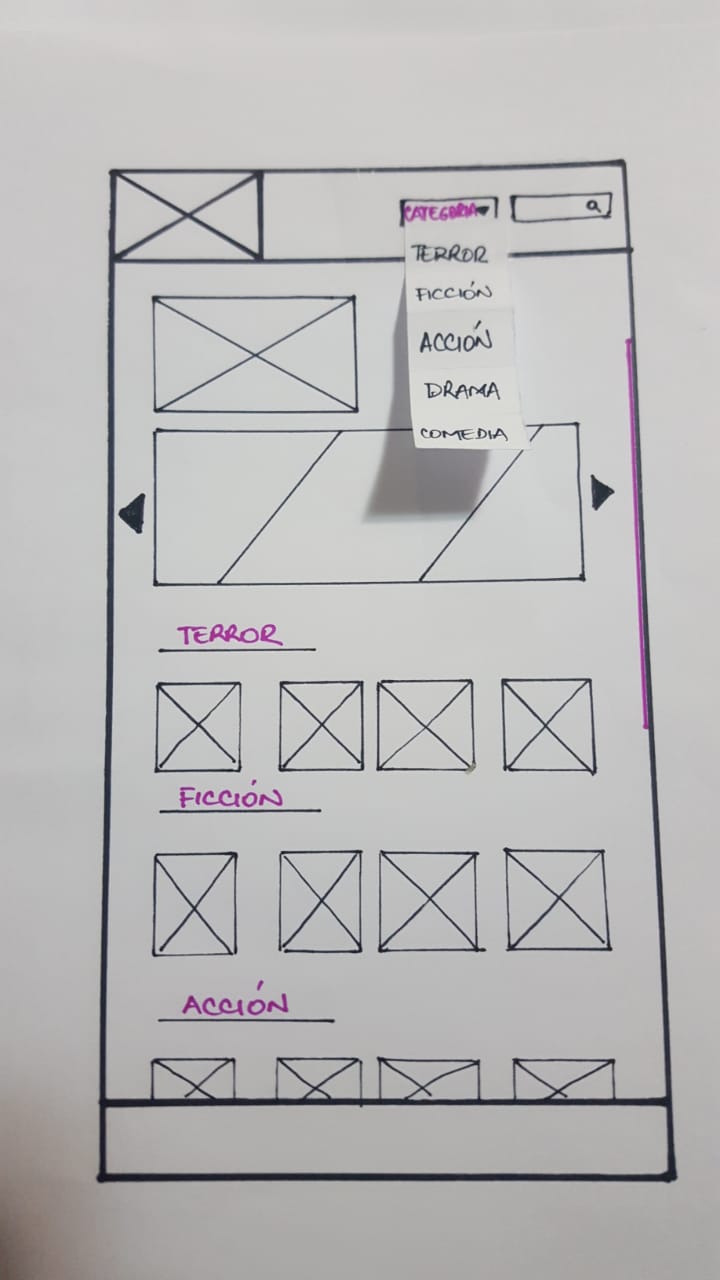 CATEGORIA
TERROR
FICCIÓN
ACCIÓN
DRAMA
COMEDIA
TERROR
FICCIÓN
ACCIÓN